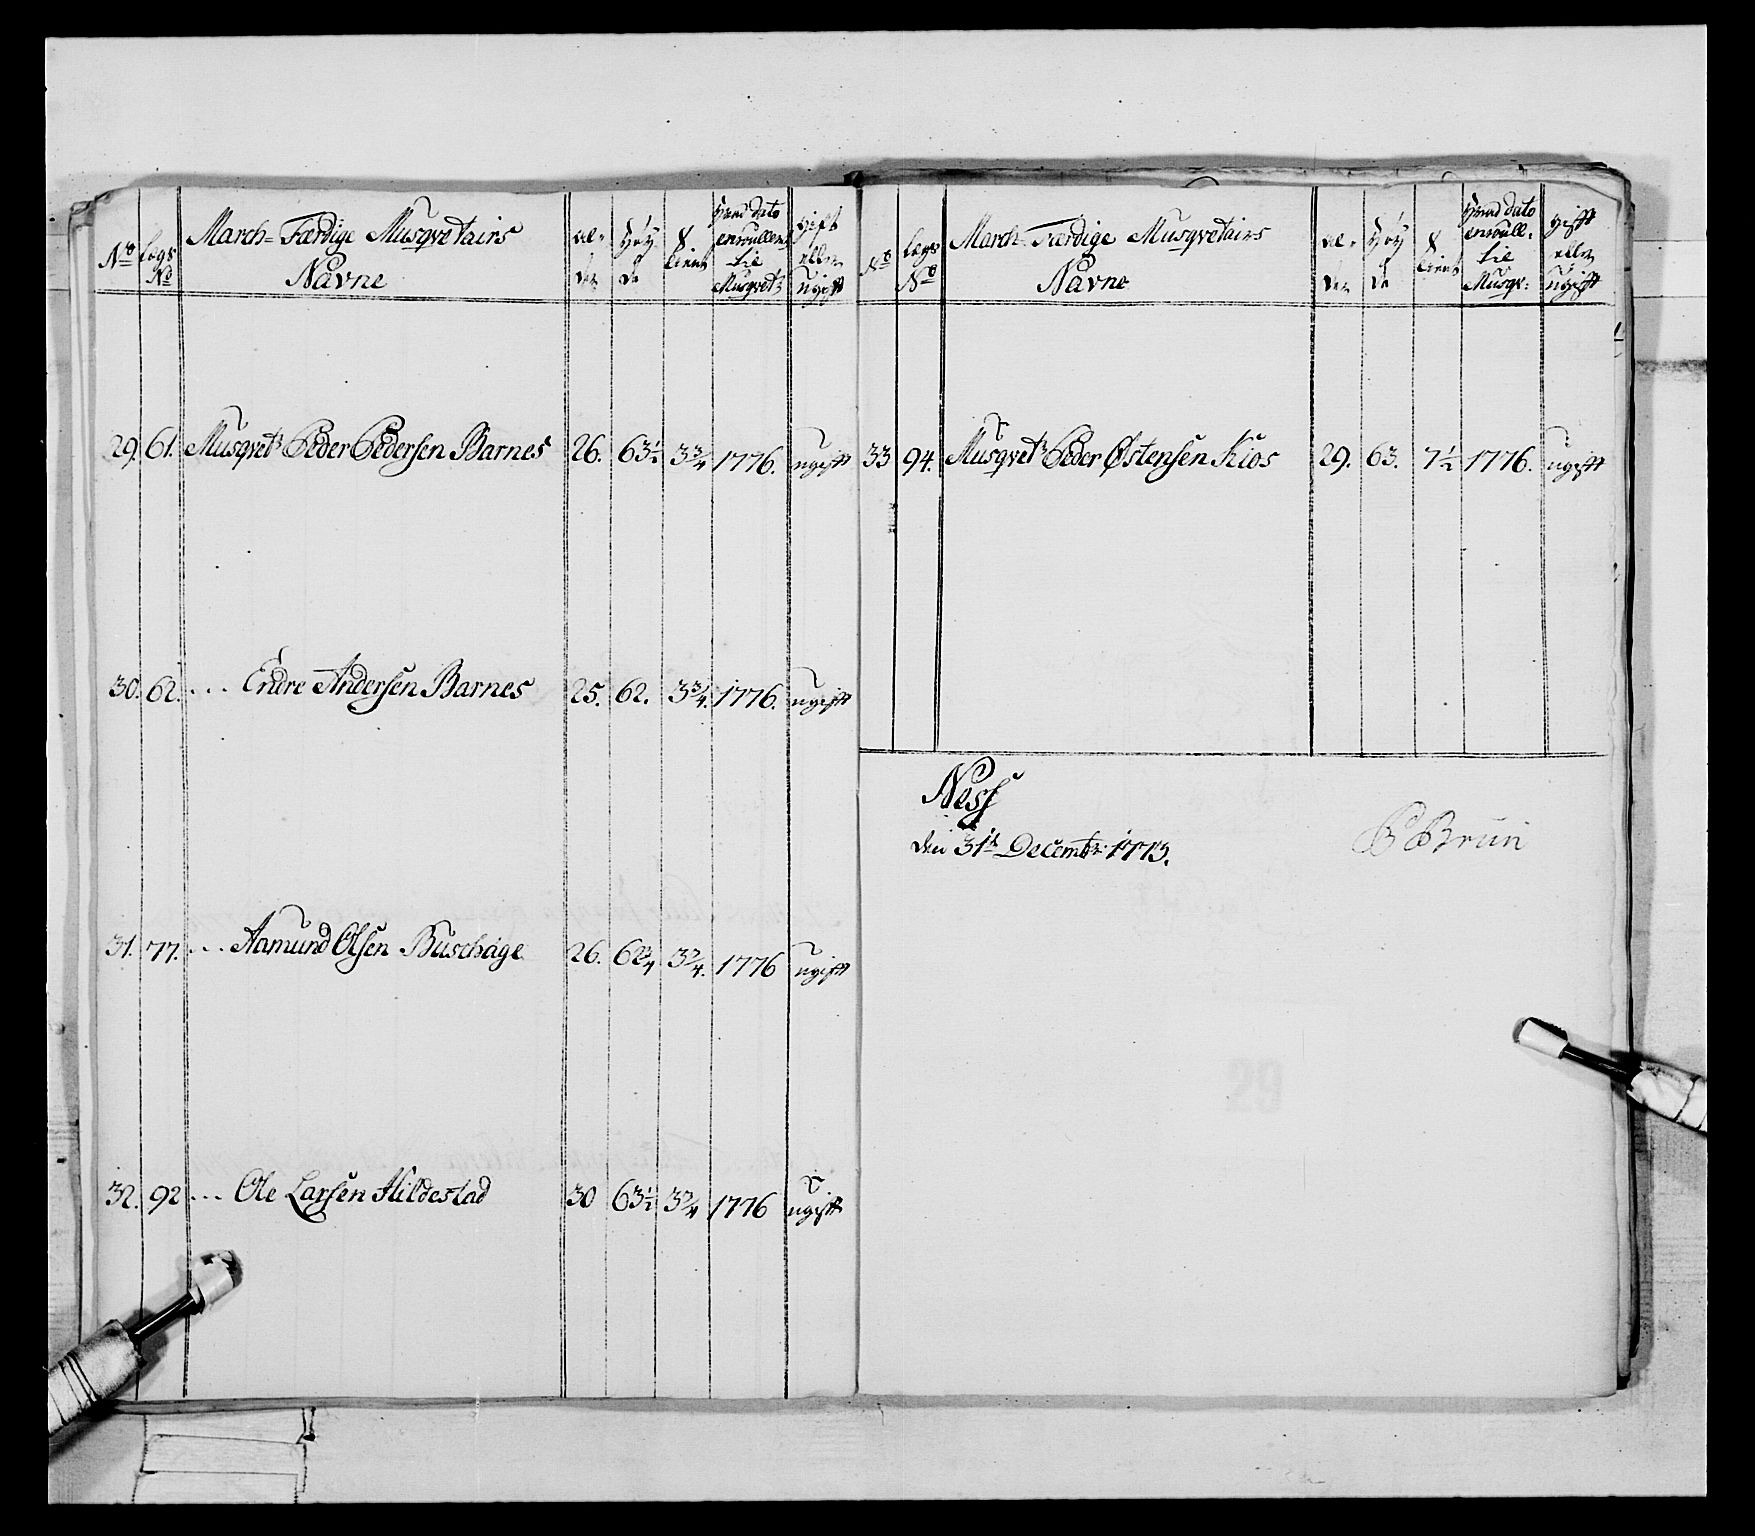 No Lægs No March-Færdige Musqvetairs Navne al-der Høy de tient hvad dato enroullert til Musqvet: gift eller ugift
29. 61. Musqvetr Peder Pedersen Barnes 26. 63½ 3¾ 1776. ugift
30. 62. ... Endre Andersen Barnes 25. 62. 3¾. 1776. ugift
31. 77. ... Aamund Olsen Buschage 26. 62¾ 3¾. 1776 ugift
32. 92 ... Ole Larsen Hildestad 30 63½ 3¾ 1776 ugift
No Lægs No March-Færdige Musqvetairs Navne al-der Høy de tient hvad dato enroull. til Musqv: gift eller ugift
33 94. Musqvetr Peder Østensen Kios 29. 63. 7½ 1776. ugift
Ness
den 31te Decembr: 1773.
Brun